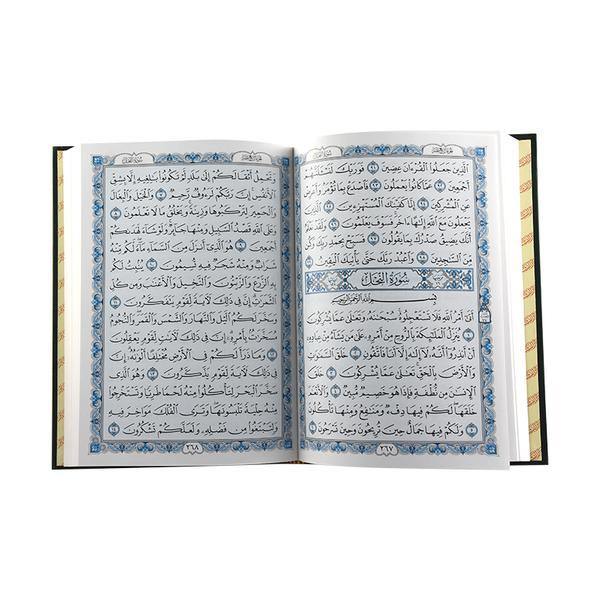 الَّذِينَ جَعَلُوا الْقُرْءَانَ عِضِينَ ٩١ فَوَرَبِّكَ لَنَسْـَٔلَنَّهُمْ
أَجْمَعِينَ ٩٢ عَمَّا كَانُوا يَعْمَلُونَ ٩٣ فَاصْدَعْ بِمَا تُؤْمَرُ وَأَعْرِضْ
عَنِ الْمُشْرِكِينَ ٩٤ إِنَّا كَفَيْنَٰكَ الْمُسْتَهْزِءِينَ ٩٥ الَّذِينَ
يَجْعَلُونَ مَعَ اللَّهِ إِلَٰهًا ءَاخَرَ فَسَوْفَ يَعْلَمُونَ ٩٦ وَلَقَدْ نَعْلَمُ
أَنَّكَ يَضِيقُ صَدْرُكَ بِمَا يَقُولُونَ ٩٧ فَسَبِّحْ بِحَمْدِ رَبِّكَ وَكُن
مِّنَ السَّٰجِدِينَ ٩٨ وَاعْبُدْ رَبَّكَ حَتَّىٰ يَأْتِيَكَ الْيَقِينُ ٩٩
سُورَةُ النَّحْلِ
بِسْمِ اللَّهِ الرَّحْمَٰنِ الرَّحِيمِ
أَتَىٰ أَمْرُ اللَّهِ فَلَا تَسْتَعْجِلُوهُ سُبْحَٰنَهُ وَتَعَٰلَىٰ عَمَّا يُشْرِكُونَ
١ يُنَزِّلُ الْمَلَٰئِكَةَ بِالرُّوحِ مِنْ أَمْرِهِ عَلَىٰ مَن يَشَاءُ مِنْ عِبَادِهِ
أَنْ أَنذِرُوا أَنَّهُ لَا إِلَٰهَ إِلَّا أَنَا فَاتَّقُونِ ٢ خَلَقَ السَّمَٰوَٰتِ
وَالْأَرْضَ بِالْحَقِّ تَعَٰلَىٰ عَمَّا يُشْرِكُونَ ٣ خَلَقَ
الْإِنسَٰنَ مِن نُّطْفَةٍ فَإِذَا هُوَ خَصِيمٌ مُّبِينٌ ٤ وَالْأَنْعَٰمَ
خَلَقَهَا لَكُمْ فِيهَا دِفْءٌ وَمَنَٰفِعُ وَمِنْهَا تَأْكُلُونَ
٥ وَلَكُمْ فِيهَا جَمَالٌ حِينَ تُرِيحُونَ وَحِينَ تَسْرَحُونَ ٦
٢٦٧
وَتَحْمِلُ أَثْقَالَكُمْ إِلَىٰ بَلَدٍ لَّمْ تَكُونُوا بَٰلِغِيهِ إِلَّا بِشِقِّ
الْأَنفُسِ إِنَّ رَبَّكُمْ لَرَءُوفٌ رَّحِيمٌ ٧ وَالْخَيْلَ وَالْبِغَالَ
وَالْحَمِيرَ لِتَرْكَبُوهَا وَزِينَةً وَيَخْلُقُ مَا لَا تَعْلَمُونَ ٨
وَعَلَى اللَّهِ قَصْدُ السَّبِيلِ وَمِنْهَا جَائِرٌ وَلَوْ شَاءَ لَهَدَىٰكُمْ
أَجْمَعِينَ ٩ هُوَ الَّذِي أَنزَلَ مِنَ السَّمَاءِ مَاءً لَّكُم مِّنْهُ
شَرَابٌ وَمِنْهُ شَجَرٌ فِيهِ تُسِيمُونَ ١٠ يُنبِتُ لَكُم
بِهِ الزَّرْعَ وَالزَّيْتُونَ وَالنَّخِيلَ وَالْأَعْنَٰبَ وَمِن كُلِّ
الثَّمَرَٰتِ إِنَّ فِي ذَٰلِكَ لَءَايَةً لِّقَوْمٍ يَتَفَكَّرُونَ ١١
وَسَخَّرَ لَكُمُ اللَّيْلَ وَالنَّهَارَ وَالشَّمْسَ وَالْقَمَرَ وَالنُّجُومُ
مُسَخَّرَٰتٌ بِأَمْرِهِ إِنَّ فِي ذَٰلِكَ لَءَايَٰتٍ لِّقَوْمٍ يَعْقِلُونَ
١٢ وَمَا ذَرَأَ لَكُمْ فِي الْأَرْضِ مُخْتَلِفًا أَلْوَٰنُهُ إِنَّ
فِي ذَٰلِكَ لَءَايَةً لِّقَوْمٍ يَذَّكَّرُونَ ١٣ وَهُوَ الَّذِي
سَخَّرَ الْبَحْرَ لِتَأْكُلُوا مِنْهُ لَحْمًا طَرِيًّا وَتَسْتَخْرِجُوا
مِنْهُ حِلْيَةً تَلْبَسُونَهَا وَتَرَى الْفُلْكَ مَوَاخِرَ فِيهِ
وَلِتَبْتَغُوا مِن فَضْلِهِ وَلَعَلَّكُمْ تَشْكُرُونَ ١٤
٢٦٨